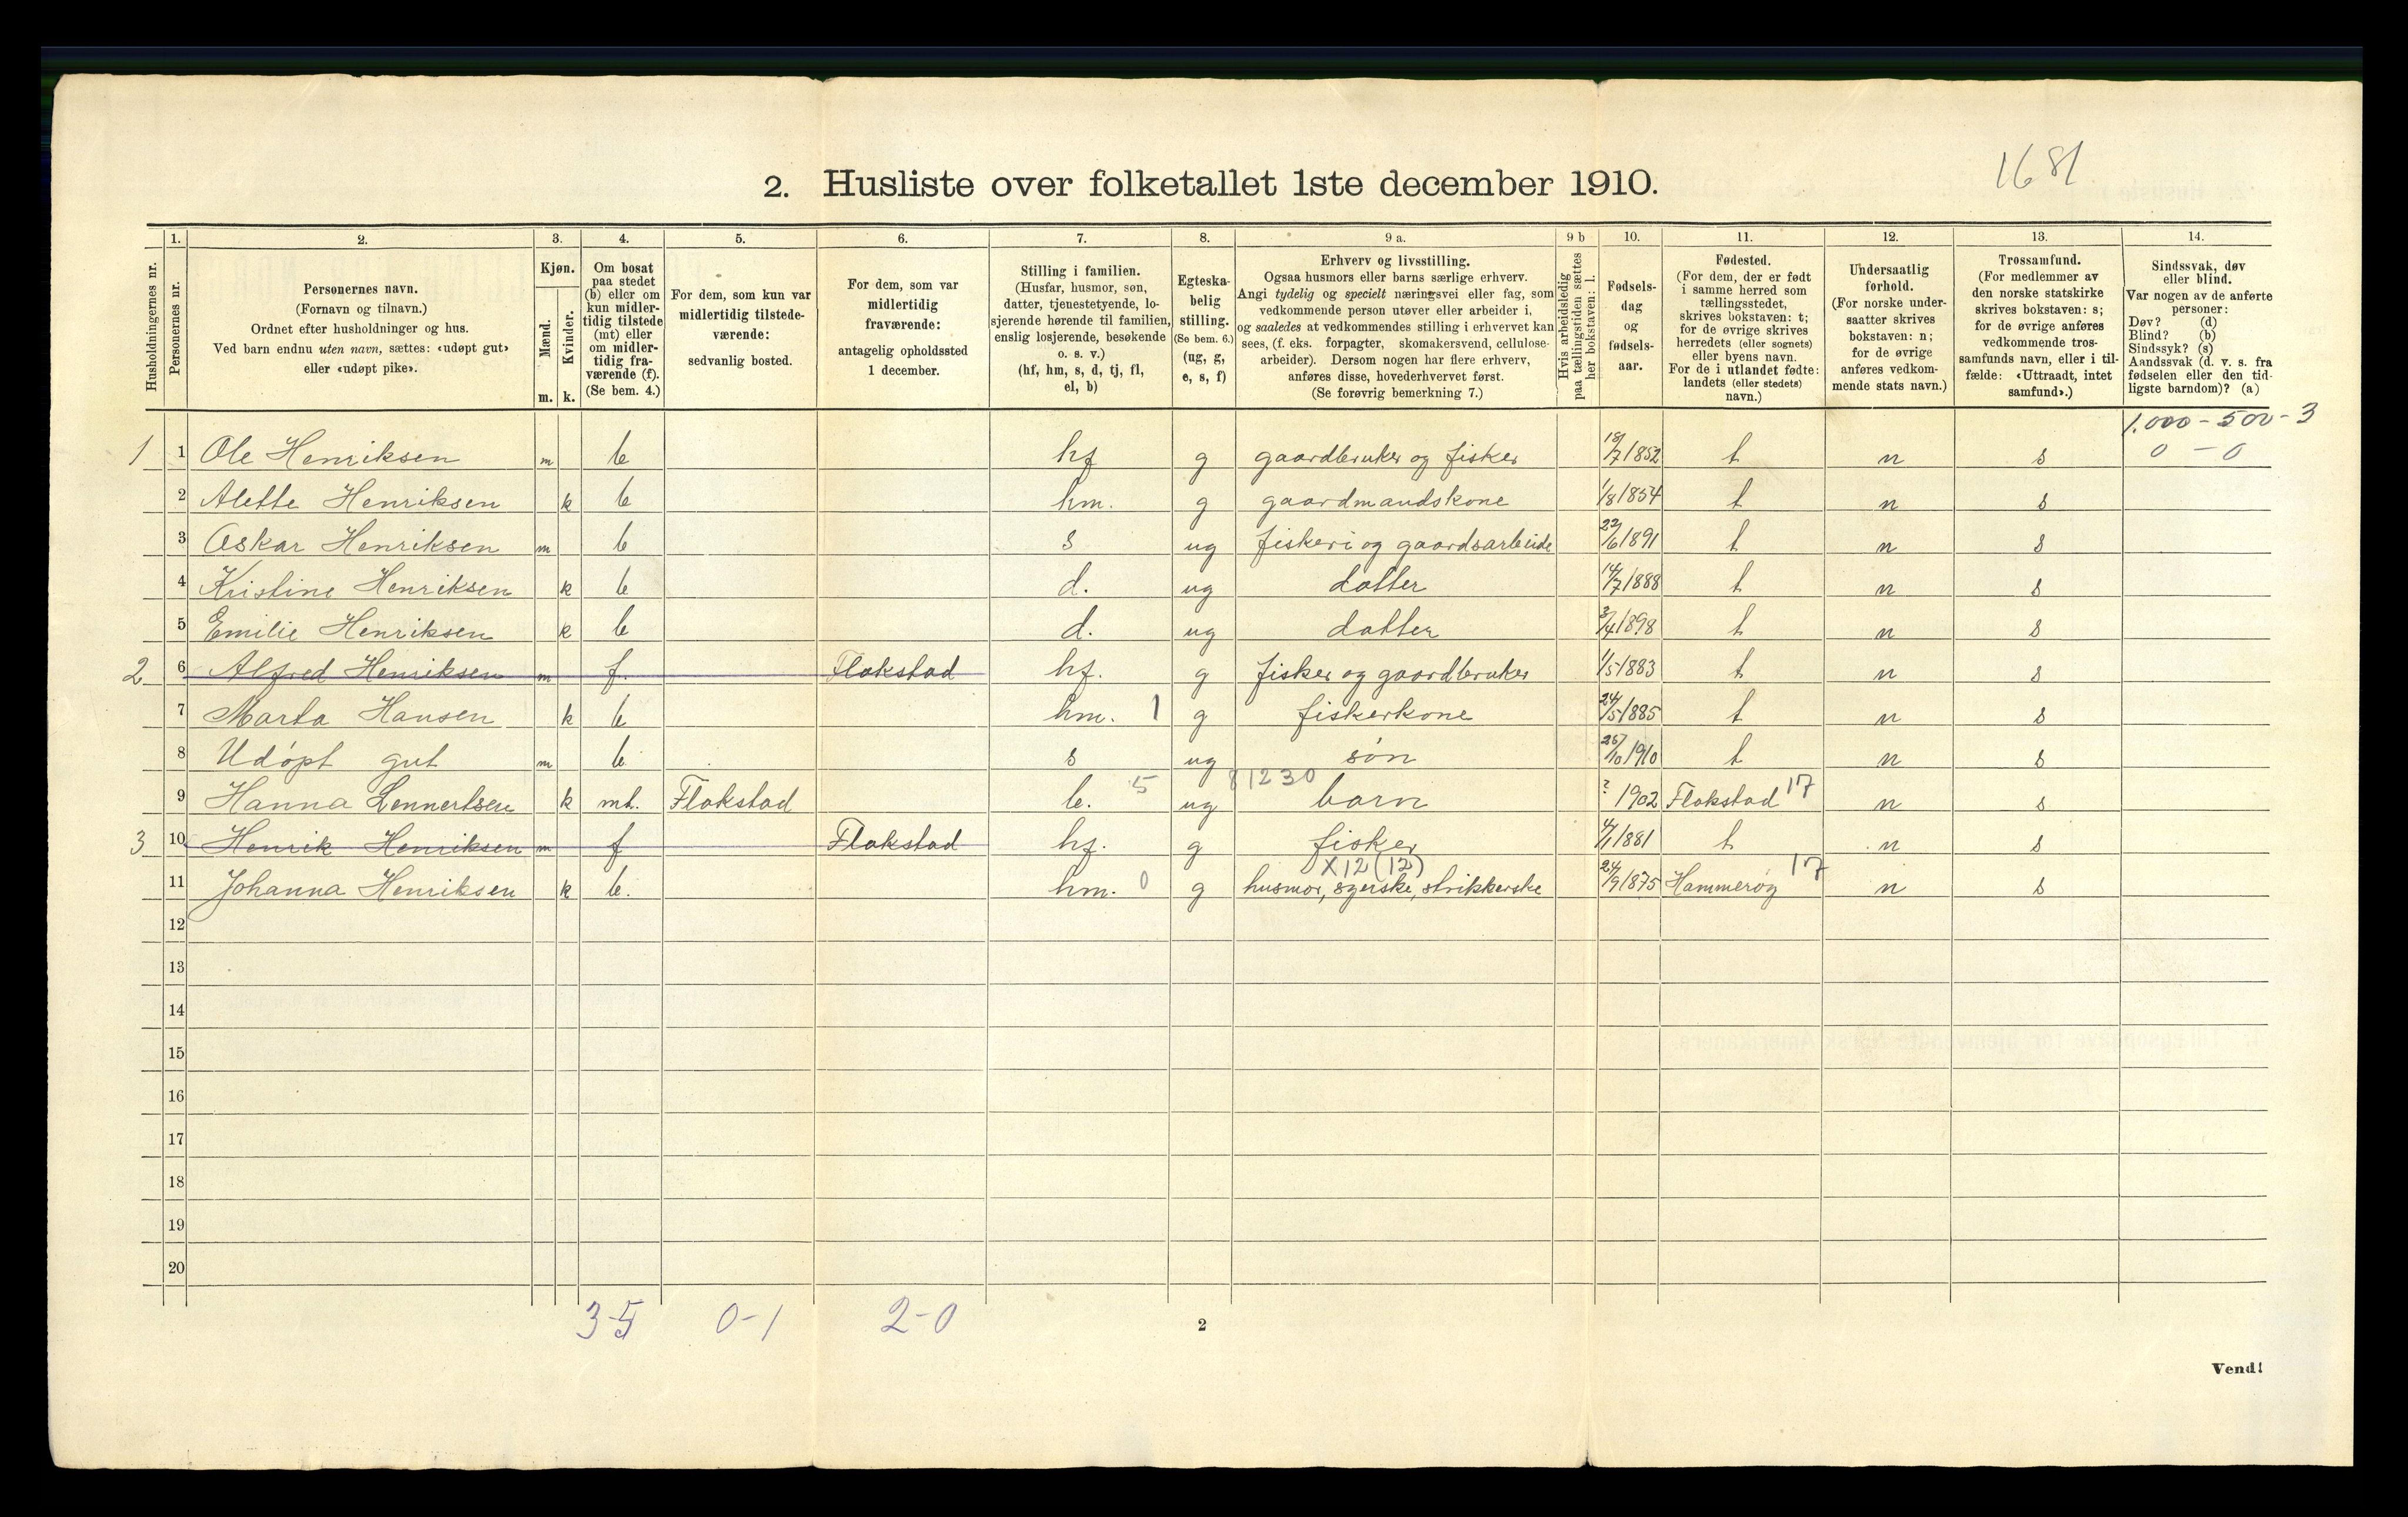 1681
2. Husliste over folketallet 1ste december 1910.
Husholdningernes nr.
1.
Personernes nr.
2.
Personernes navn.
(Fornavn og tilnavn.)
Ordnet efter husholdninger og hus.
Ved barn endnu uten navn, sættes: «udøpt gut»
eller «udøpt pike».
3.
Kjøn.
Mænd.
Kvinder.
m. k.
4.
Om bosat
paa stedet
(b) eller om
kun midler-
tidig tilstede
(mt) eller
om midler-
tidig fra-
værende (f).
(Se bem. 4.)
5.
For dem, som kun var
midlertidig tilstede-
værende:
sedvanlig bosted.
6.
For dem, som var
midlertidig
fraværende:
antagelig opholdssted
1 december.
7.
Stilling i familien.
(Husfar, husmor, søn,
datter, tjenestetyende, lo-
sjerende hørende til familien,
enslig losjerende, besøkende
o. s. v.)
(hf, hm, s, d, tj, fl,
el, b)
8.
Egteska-
belig
stilling.
(Se bem. 6.)
(ug, g,
e, s, f)
9 a.
Erhverv og livsstilling.
Ogsaa husmors eller barns særlige erhverv.
Angi tydelig og specielt næringsvei eller fag, som
vedkommende person utøver eller arbeider i,
og saaledes at vedkommendes stilling i erhvervet kan
sees, (f. eks. forpagter, skomakersvend, cellulose-
arbeider). Dersom nogen har flere erhverv,
anføres disse, hovederhvervet først.
(Se forøvrig bemerkning 7.)
9 b
Hvis arbeidsledig
paa tællingstiden sættes
her bokstaven: l.
10.
Fødsels-
dag
og
fødsels-
aar.
11.
Fødested.
(For dem, der er født
i samme herred som
tællingsstedet,
skrives bokstaven: t;
for de øvrige skrives
herredets (eller sognets)
eller byens navn.
For de i utlandet fødte:
landets (eller stedets)
navn.)
12.
Undersaatlig
forhold.
(For norske under-
saatter skrives
bokstaven: n;
for de øvrige
anføres vedkom-
mende stats navn.)
13.
Trossamfund.
(For medlemmer av
den norske statskirke
skrives bokstaven: s;
for de øvrige anføres
vedkommende tros-
samfunds navn, eller i til-
fælde: «Uttraadt, intet
samfund».)
14.
Sindssvak, døv
eller blind.
Var nogen av de anførte
personer:
Døv? (d)
Blind? (b)
Sindssyk? (s)
Aandssvak (d. v. s. fra
fødselen eller den tid-
ligste barndom)? (a)
1.000 - 500 - 3
1 1 Ole Henriksen m b hf g gaardbruker og fisker 18/7 1852 t n s 0 - 0
2 Alette Henriksen k b hm. g gaardmandskone 1/8 1854 t n s
3 Oskar Henriksen m b s ug fiskeri og gaardsarbeide 22/6 1891 t n s
4 Kristine Henriksen k b d. ug datter 14/7 1888 t n s
5 Emilie Henriksen k b d. ug datter 3/4 1898 t n s
2 6 Alfred Henriksen m f. Flakstad hf. g fisker og gaardbruker 1/5 1883 t n s
7 Marta Hansen k b hm. 1 g fiskerkone 24/5 1885 t n s
8 Udøpt gut m b s ug søn 26/10 1910 t n s
9 Hanna Lennertsen k mt. Flakstad b. 5 ug 81230 barn ? 1902 Flakstad 17 n s
3 10 Henrik Henriksen m f Flakstad hf. g fisker 4/1 1881 t n s
11 Johanna Henriksen k b. hm. 0 g X12 (12) husmor, syerske, strikkerske 24/9 1875 Hammerøy 17 n s
12
13
14
15
16
17
18
19
20
3-5 0-1 2-0
2
Vend!